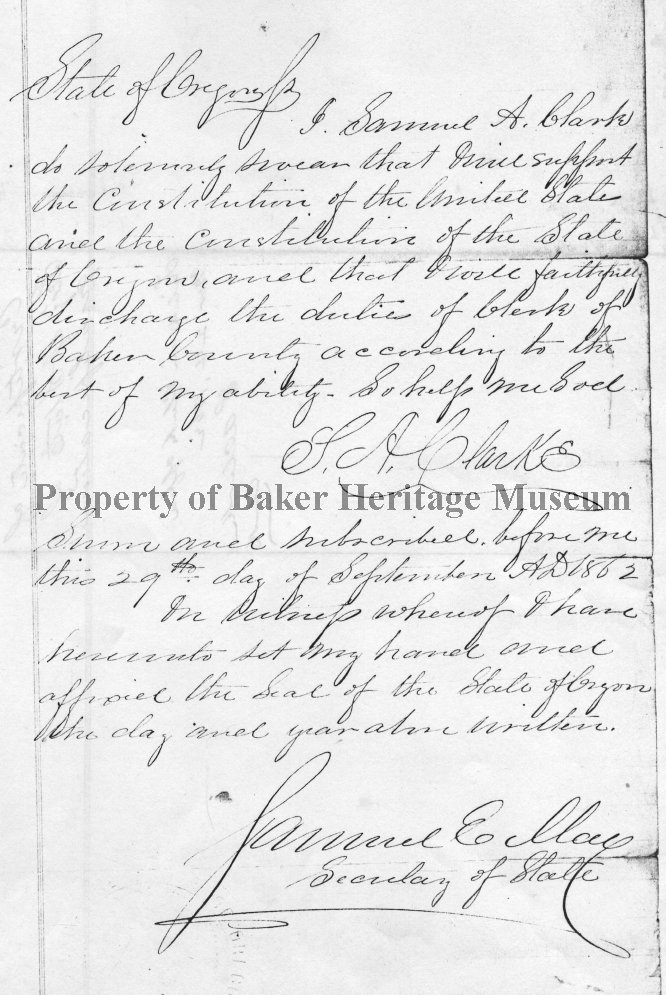 State of Oregon ss
I. Samuel A. Clark
do solemnly swear that I will support
the Constitution of the United State
and the Constitution of the State
of Oregon, and that I will faithfully
discharge the duties of Clerk of
Baker County according to the
best of my ability. So help me God
S. A. Clarke
Property of Baker Heritage Museum
Sworn and subscribed before me
this 29th day of September AD 1862
In witness whereof I have
hereunto set my hand and
affixed the Seal of the State of Oregon
the day and year above written.
Samuel E. May
Secretary of State